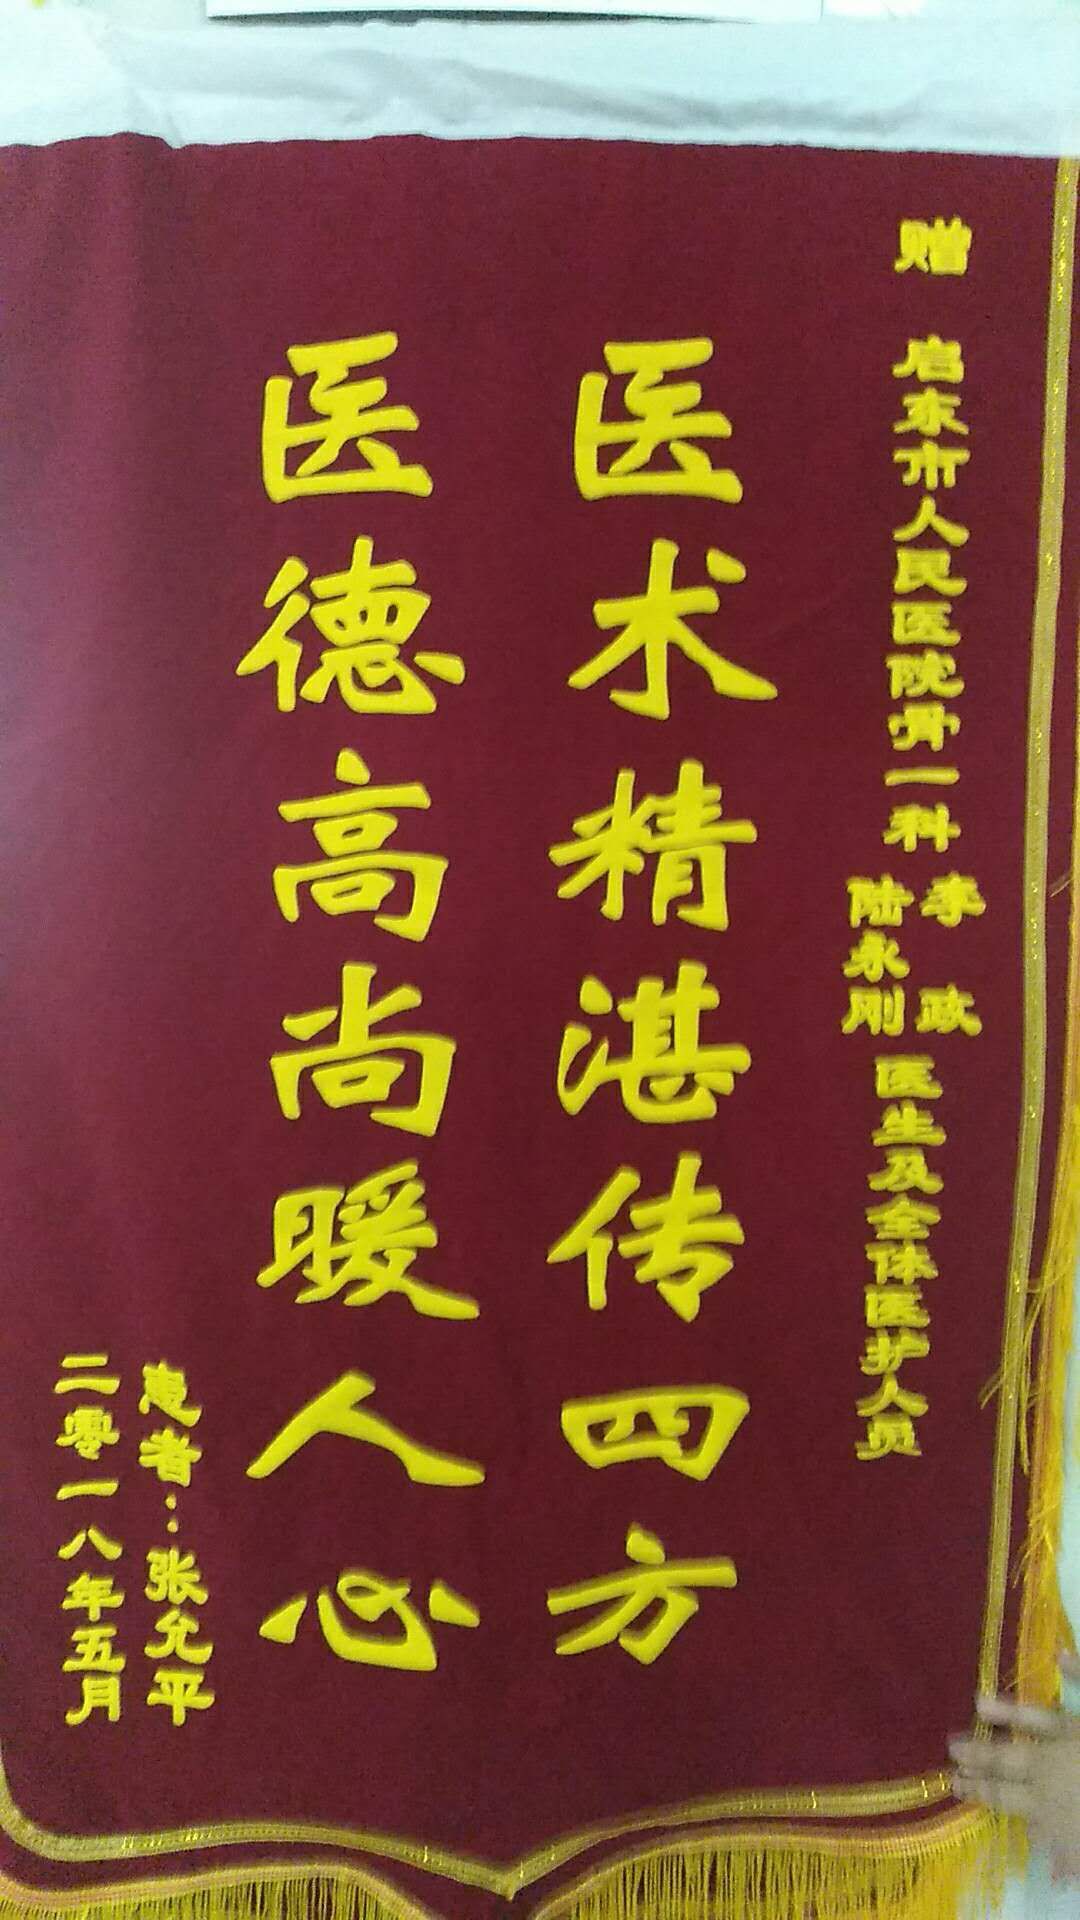 赠 启东市人民医院骨一科
李政
陆永刚
医生及全体医护人员
医术精湛传四方
医德高尚暖人心
患者：张允平
二零一八年五月